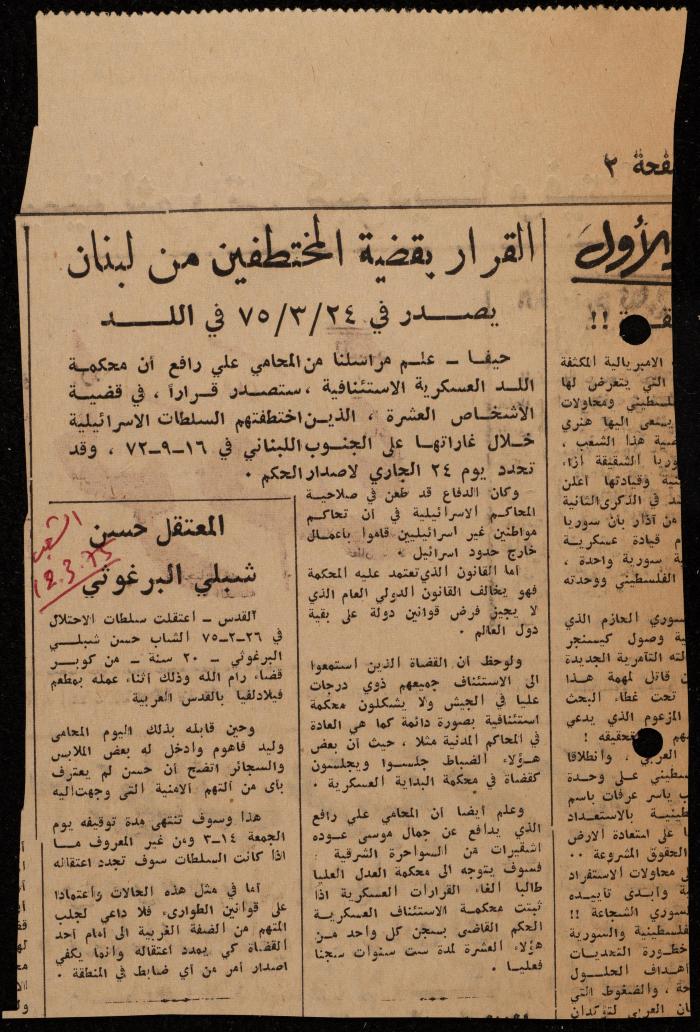 صفحة ٢
القرار بقضية المختطفين من لبنان
يصدر في ٧٥/٣/٢٤ في اللد
حيفا – علم مراسلنا من المحامي علي رافع أن محكمة
اللد العسكرية الاستئنافية ، ستصدر قراراً ، في قضية
الأشخاص العشرة ، الذين اختطفتهم السلطات الاسرائيلية
خلال غاراتها على الجنوب اللبناني في ١٦–٩–٧٢ ، وقد
تحدد يوم ٢٤ الجاري لاصدار الحكم .
وكان الدفاع قد طعن في صلاحية
المحاكم الاسرائيلية في أن تحاكم
مواطنين غير اسرائيليين قاموا بأعمال
خارج حدود اسرائيل .
أما القانون الذي تعتمد عليه المحكمة
فهو يخالف القانون الدولي العام الذي
لا يجيز فرض قوانين دولة على بقية
دول العالم .
ولوحظ أن القضاة الذين استمعوا
الى الاستئناف جميعهم ذوي درجات
عليا في الجيش ولا يشكلون محكمة
استئنافية بصورة دائمة كما هي العادة
في المحاكم المدنية مثلا ، حيث أن بعض
هؤلاء الضباط جلسوا ويجلسون
كقضاة في محكمة البداية العسكرية .
وعلم أيضا أن المحامي علي رافع
الذي يدافع عن جمال موسى عوده
اشقيرات من السواحرة الشرقية
فسوف يتوجه الى محكمة العدل العليا
طالبا الغاء القرارات العسكرية اذا
ثبتت محكمة الاستئناف العسكرية
الحكم القاضي بسجن كل واحد من
هؤلاء العشرة لمدة ست سنوات سجنا
فعليا .
المعتقل حسين
شبلي البرغوثي
الشعب
12.3.75
القدس – اعتقلت سلطات الاحتلال
في ٢٦–٢–٧٥ الشاب حسن شبلي
البرغوثي – ٢٠ سنة – من كوبر
قضاء رام الله وذلك أثناء عمله بمطعم
فيلادلفيا بالقدس العربية
وحين قابله بذلك اليوم المحامي
وليد فاهوم وأدخل له بعض الملابس
والسجائر اتضح أن حسن لم يعترف
بأي من التهم الامنية التي وجهت اليه
هذا وسوف تنتهي مدة توقيفه يوم
الجمعة ١٤–٣ ومن غير المعروف ما
اذا كانت السلطات سوف تجدد اعتقاله
أما في مثل هذه الحالات واعتمادا
على قوانين الطوارىء فلا داعي لجلب
المتهم من الضفة الغربية الى أمام أحد
القضاة كي يمدد اعتقاله وانما يكفي
اصدار أمر من أي ضابط في المنطقة .
الأول
!!
الامبريالية المكثفة
التي يتعرض لها
ومحاولات
يسعى اليها هنري
هذا الشعب ،
الشقيقة أزاء
وقيادتها أعلن
في الذكرى الثانية
من آذار بأن سوريا
قيادة عسكرية
سورية واحدة ،
الفلسطيني ووحدته
الحازم الذي
وصول كيسنجر
التآمرية الجديدة
قاتل لمهمة هذا
تحت غطاء البحث
المزعوم الذي يدعي
تحقيقه !
العربي ، وانطلاقا
على وحدة
ياسر عرفات باسم
بالاستعداد
على استعادة الارض
الحقوق المشروعة ..
محاولات الاستفراد
وأبدى تأييده
الشجاعة !!
والسورية
خطورة التحديات
أهداف الحلول
، والضغوط التي
العربي لتؤكدان